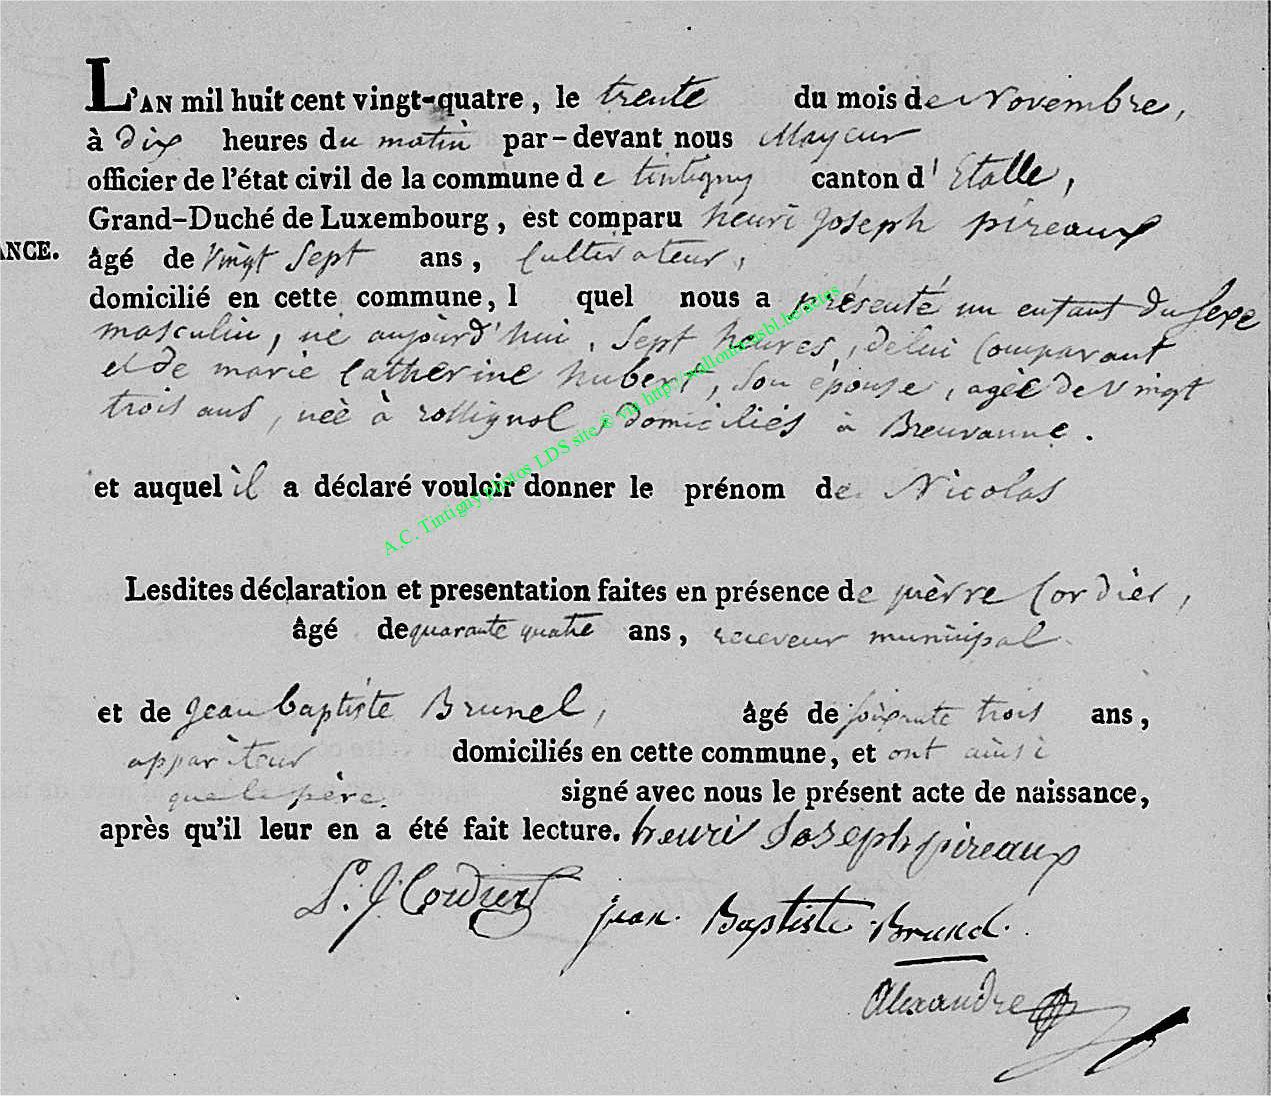 L'AN mil huit cent vingt-quatre, le trente du mois de Novembre,
à dix heures du matin par-devant nous Mayeur
officier de l'état civil de la commune de tintigny canton d'Etalle,
Grand-Duché de Luxembourg, est comparu henri joseph pireaux
ANCE. âgé de vingt sept ans, Cultivateur,
domicilié en cette commune, l quel nous a présenté un enfant du Sexe
masculin, né aujourd'hui, Sept heures, de lui Comparant
et de marie Catherine hubert, Son épouse, agée de vingt
trois ans, née à rossignol, domiciliés à Breuvanne.
et auquel il a déclaré vouloir donner le prénom de Nicolas
Lesdites déclaration et presentation faites en présence de pièrre Cordier,
âgé de quarante quatre ans, receveur municipal
et de jean baptiste Brunel, âgé de soixante trois ans,
appariteur domiciliés en cette commune, et ont ainsi
que le père. signé avec nous le présent acte de naissance,
après qu'il leur en a été fait lecture. henri Joseph pireaux
P. J. Cordier jean. Baptiste Brunel.
Alexandre
A.C. Tintigny photos LDS site © via http://walloniasbl.be/actes